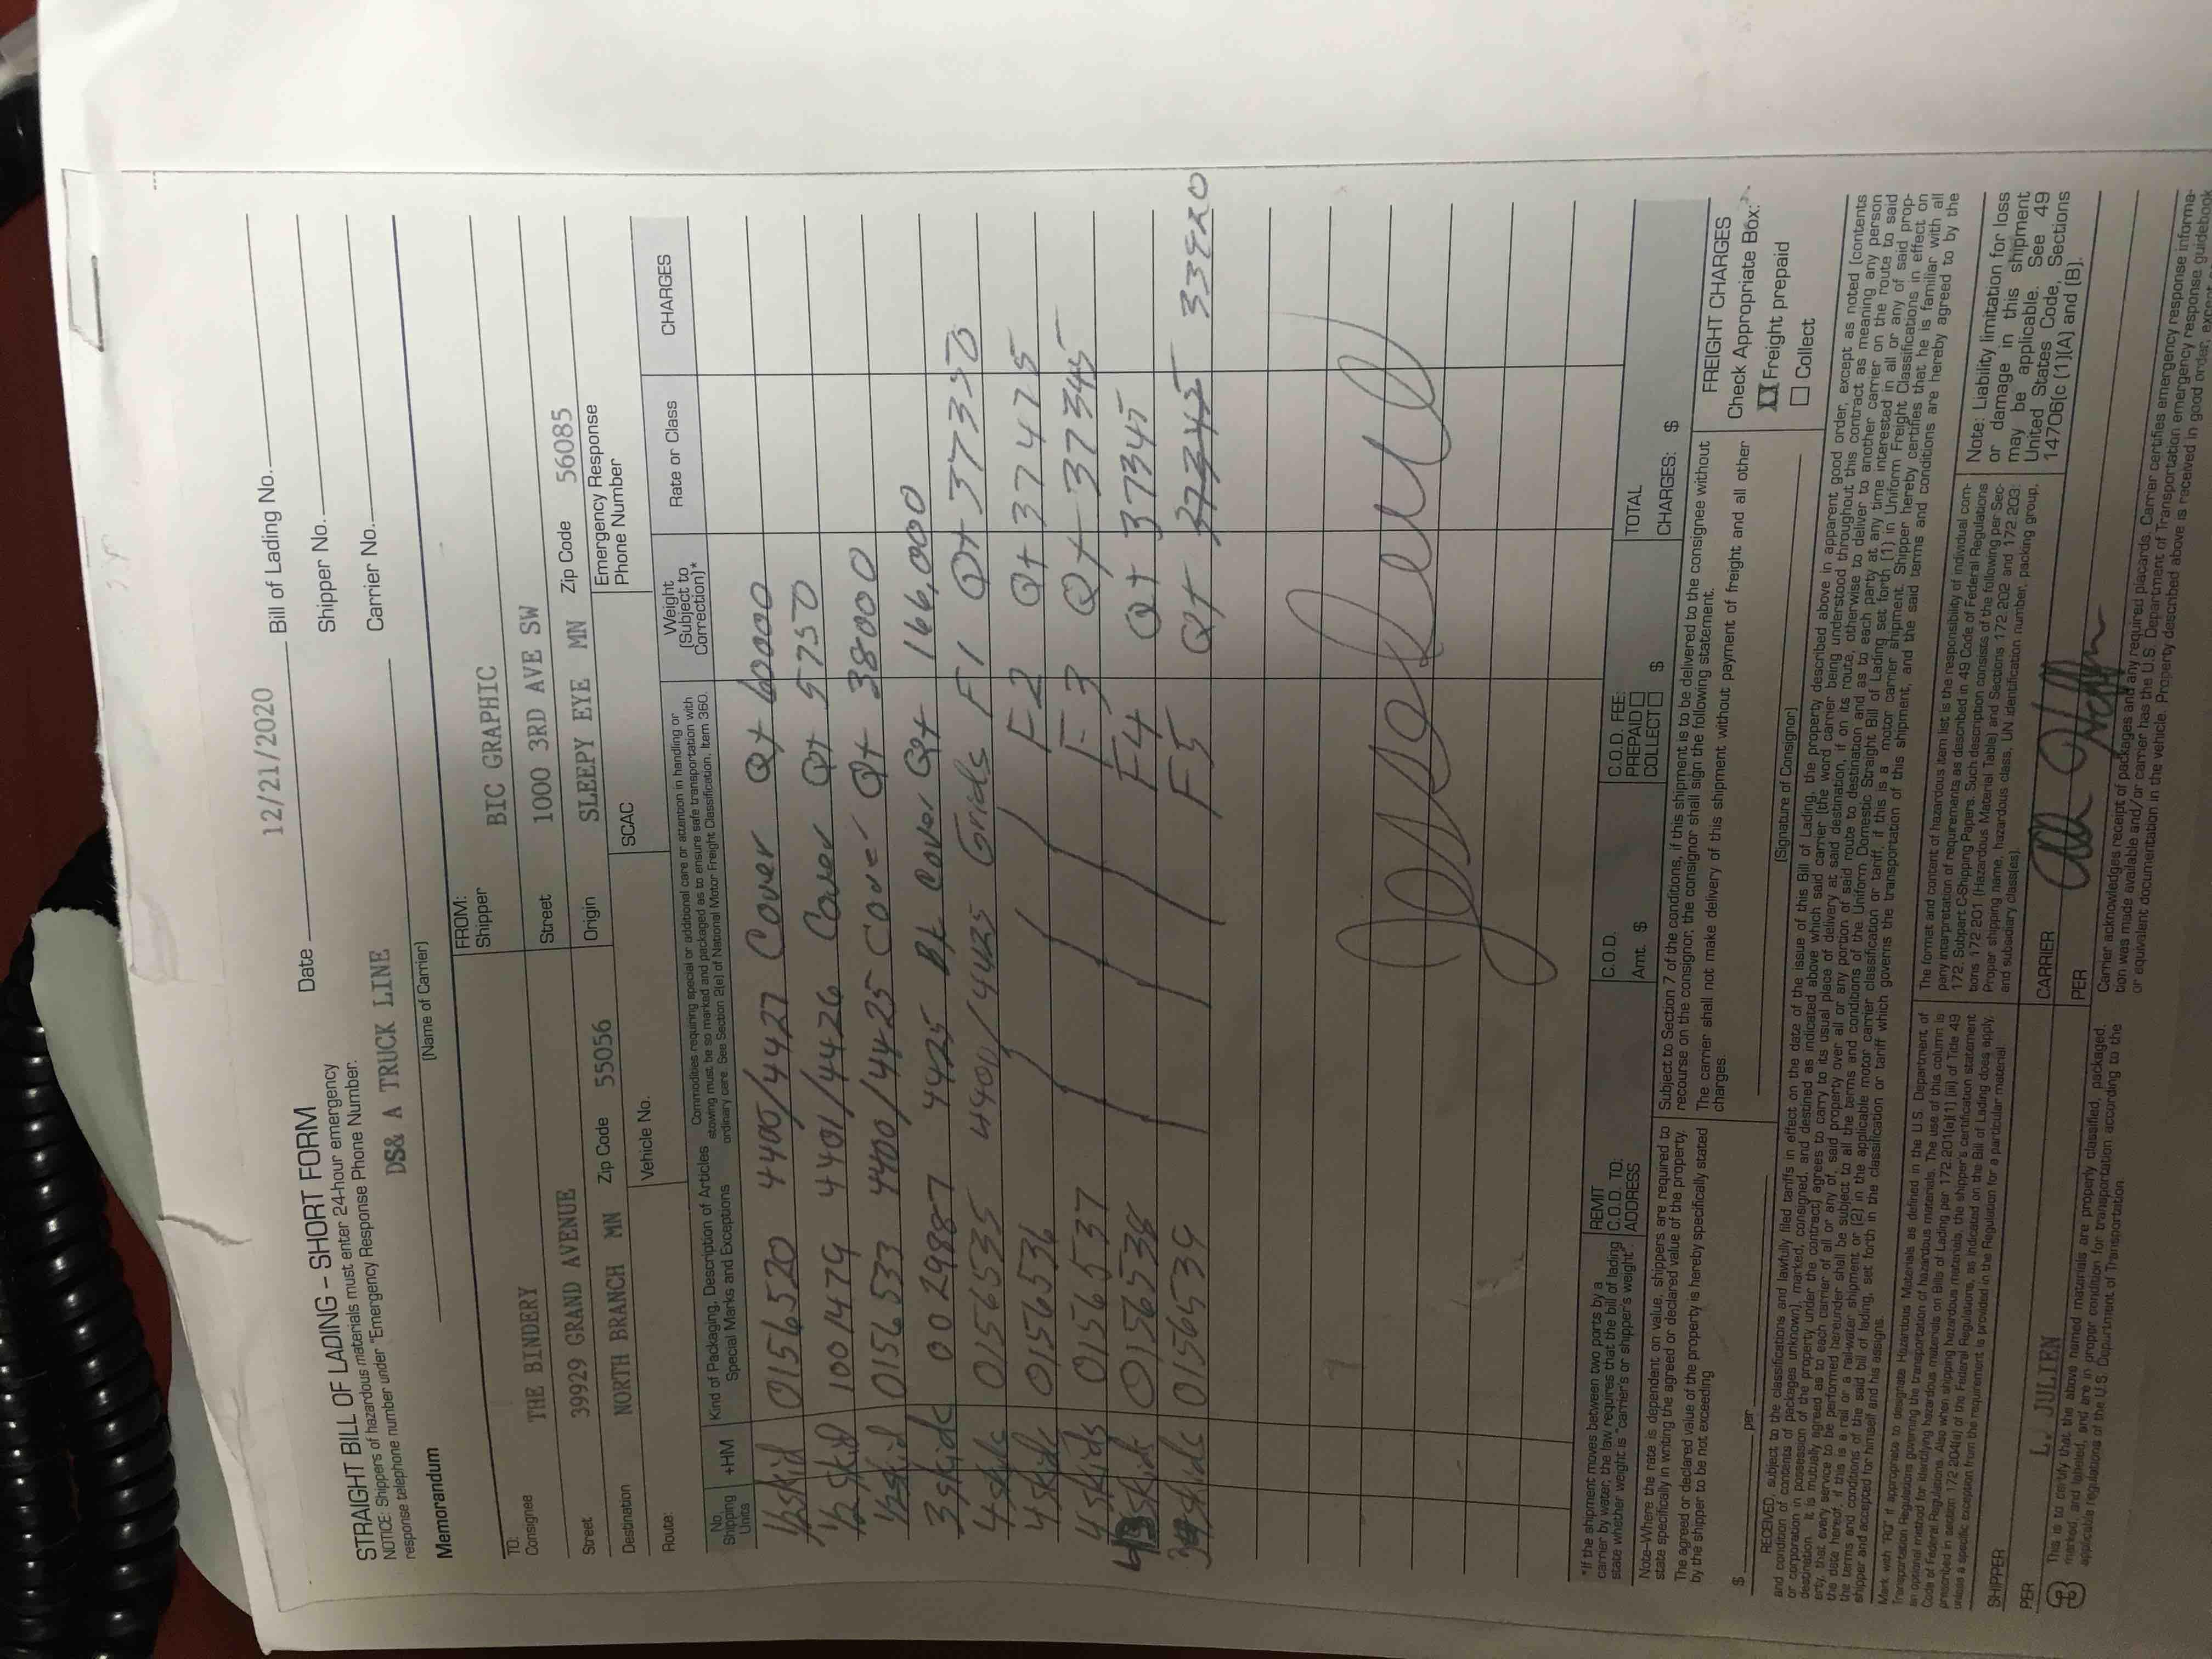 12/21/2020
STRAIGHT BILL OF LADING - SHORT FORM Date Bill of Lading No.
NOTICE: Shippers of hazardous materials must enter 24-hour emergency
response telephone number under "Emergency Response Phone Number.
Shipper No.
DS& A TRUCK LINE Carrier No.
(Name of Carrier)
Memorandum
TO: FROM:
Consignee THE BINDERY Shipper BIC GRAPHIC
Street 39929 GRAND AVENUE Street 1000 3RD AVE SW
Destination NORTH BRANCH MN Zip Code 55056 Origin SLEEPY EYE MN Zip Code 56085
Route: Vehicle No. SCAC Emergency Response
Phone Number
No. Shipping Units +HM Kind of Packaging, Description of Articles Special Marks and Exceptions
Commodities requiring special or additional care or attention in handling or
stowing must be so marked and packaged as to ensure safe transportation with
ordinary care. See Section 2(e) of National Motor Freight Classification, Item 360.
Weight (Subject to Correction)* Rate or Class CHARGES
1/2 skid 0156520 4400/4427 Cover Qt 60000
1/2 skid 1001479 4401/4426 Cover Qt 5750
1/2 skid 0156533 4400/4425 Cover Qt 38000
3 skids 0029887 4425 Bk Cover Qt 166,000
4 skids 0156535 4400/4425 Grids F1 Qt 37350
4 skids 0156536 F2 Qt 37475
4 skids 0156537 F3 Qt 37345
4 skids 0156538 F4 Qt 37345
3 skids 0156539 F5 Qt 37345 33920
*If the shipment moves between two ports by a
carrier by water, the law requires that the bill of lading
state whether weight is "carrier's or shipper's weight".
REMIT
C.O.D. TO:
ADDRESS
C.O.D.
Amt. $
C.O.D. FEE:
PREPAID
COLLECT $
TOTAL
CHARGES: $
Note-Where the rate is dependent on value, shippers are required to
state specifically in writing the agreed or declared value of the property.
The agreed or declared value of the property is hereby specifically stated
by the shipper to be not exceeding
$ per
Subject to Section 7 of the conditions, if this shipment is to be delivered to the consignee without
recourse on the consignor, the consignor shall sign the following statement.
The carrier shall not make delivery of this shipment without payment of freight and all other
charges.
(Signature of Consignor)
FREIGHT CHARGES
Check Appropriate Box:
Freight prepaid
Collect
RECEIVED, subject to the classifications and lawfully filed tariffs in effect on the date of the issue of this Bill of Lading, the property described above in apparent good order, except as noted (contents
and condition of contents of packages unknown), marked, consigned, and destined as indicated above which said carrier (the word carrier being understood throughout this contract as meaning any person
or corporation in possession of the property under the contract) agrees to carry to its usual place of delivery at said destination, if on its route, otherwise to deliver to another carrier on the route to said
destination. It is mutually agreed as to each carrier of all or any of, said property over all or any portion of said route to destination and as to each party at any time interested in all or any of said prop-
erty, that every service to be performed hereunder shall be subject to all the terms and conditions of the Uniform Domestic Straight Bill of Lading set forth (1) in Uniform Freight Classifications in effect on
the date hereof, if this is a rail or a rail-water shipment or (2) in the applicable motor carrier classification or tariff, if this is a motor carrier shipment. Shipper hereby certifies that he is familiar with all
the terms and conditions of the said bill of lading, set forth in the classification or tariff which governs the transportation of this shipment, and the said terms and conditions are hereby agreed to by the
shipper and accepted for himself and his assigns.
Mark with "RQ" if appropriate to designate Hazardous Materials as defined in the U.S. Department of
Transportation Regulations governing the transportation of hazardous materials. The use of this column is
an optional method for identifying hazardous materials on Bills of Lading per 172.201(a)(1)(iii) of Title 49
Code of Federal Regulations. Also when shipping hazardous materials, the shipper's certification statement
prescribed in section 172.204(a) of the Federal Regulations, as indicated on the Bill of Lading does apply,
unless a specific exception from the requirement is provided in the Regulation for a particular material.
The format and content of hazardous item list is the responsibility of individual com-
pany interpretation of requirements as described in 49 Code of Federal Regulations
172. Subpart C-Shipping Papers. Such description consists of the following per Sec-
tions 172.201 (Hazardous Material Table) and Sections 172.202 and 172.203:
Proper shipping name, hazardous class, UN identification number, packing group,
and subsidiary class(es).
Note: Liability limitation for loss
or damage in this shipment
may be applicable. See 49
United States Code, Sections
14706(c)(1)(A) and (B).
SHIPPER CARRIER
PER L. JULIEN PER
This is to certify that the above named materials are properly classified, packaged,
marked, and labeled, and are in proper condition for transportation according to the
applicable regulations of the U.S. Department of Transportation.
Carrier acknowledges receipt of packages and any required placards. Carrier certifies emergency response informa-
tion was made available and/or carrier has the U.S. Department of Transportation emergency response guidebook
or equivalent documentation in the vehicle. Property described above is received in good order, except as